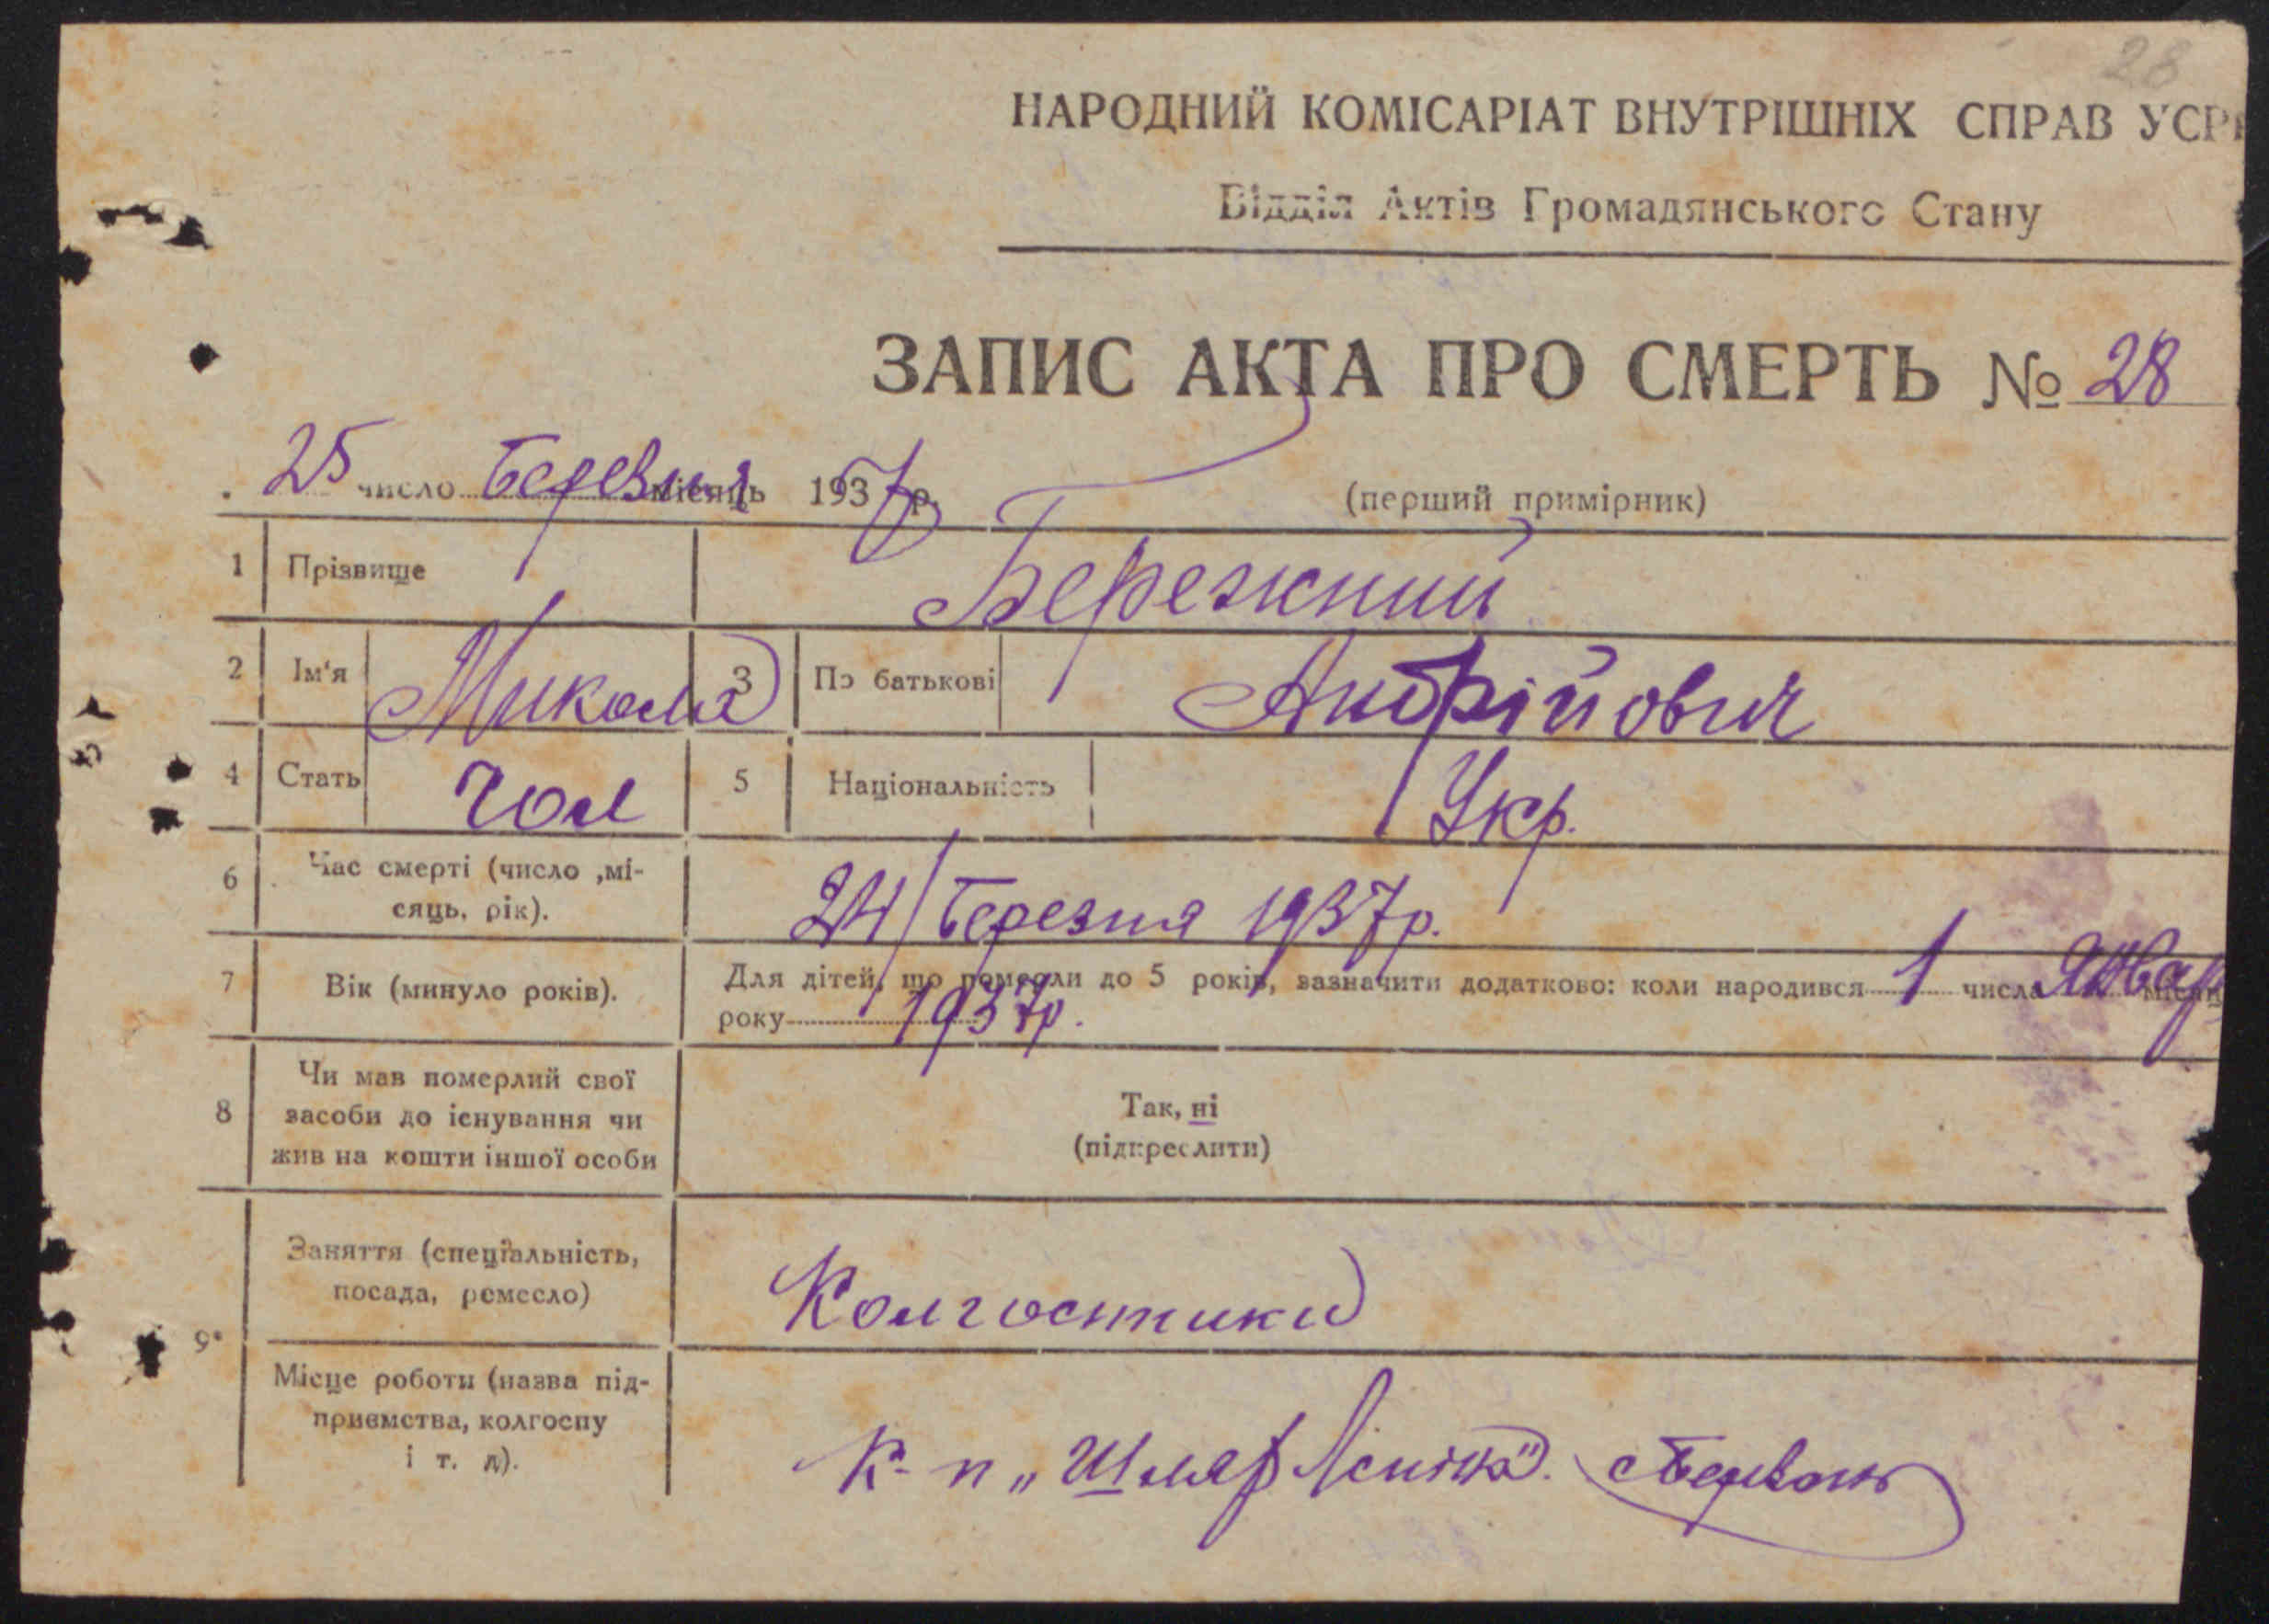 28
НАРОДНИЙ КОМІСАРІАТ ВНУТРІШНІХ СПРАВ УСР
Відділ Актів Громадянського Стану
ЗАПИС АКТА ПРО СМЕРТЬ № 28
25 число Березня місяць 1937 р.
(перший примірник)
1 Прізвище Бережний
2 Ім'я Микола 3 По батькові Андрійович
4 Стать Чол 5 Національність Укр.
6 Час смерті (число ,мі-
сяць, рік).
24/Березня 1937р.
7 Вік (минуло років).
Для дітей, що померли до 5 років, зазначити додатково: коли народився 1 числа Январ місяц
року 1937р.
8 Чи мав померлий свої
засоби до існування чи
жив на кошти іншої особи
Так, ні
(підкреслити)
9 Заняття (спеціальність,
посада, ремесло)
Колгоспники
Місце роботи (назва під-
приємства, колгоспу
і т. д).
К-п „Шлях Леніна".